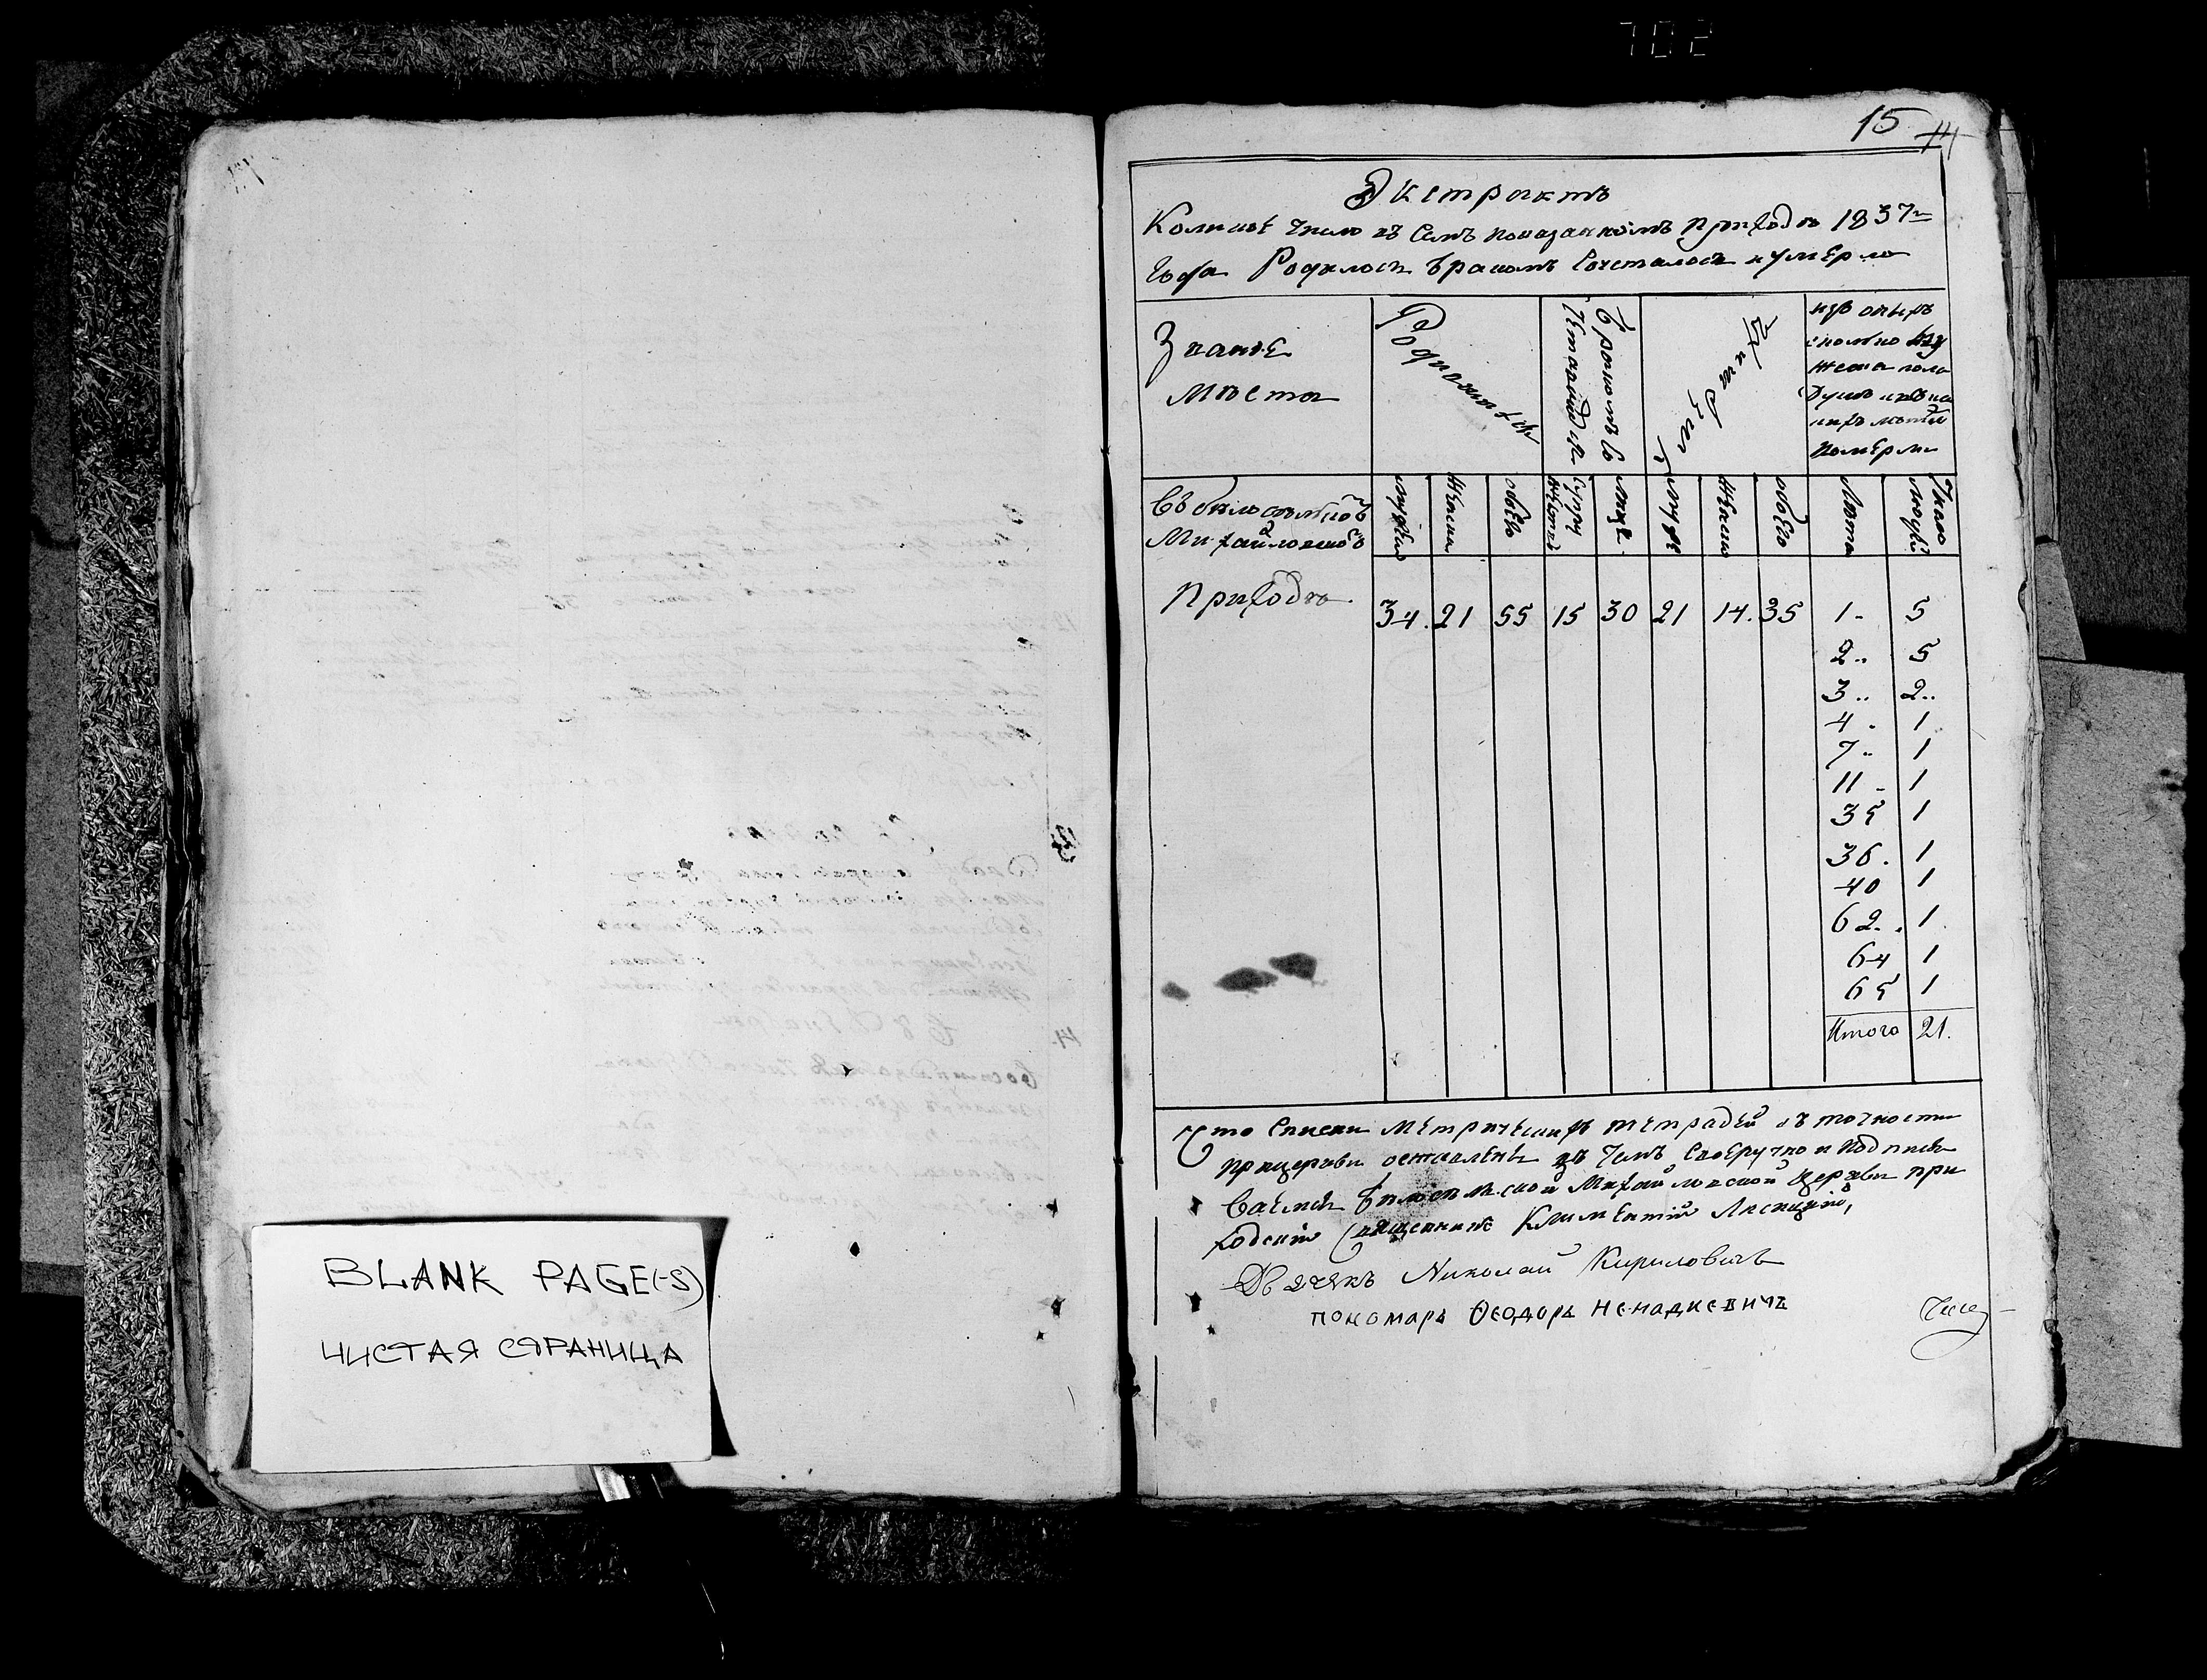 702
15 14
Экстрактъ
Коликое число въ семъ показанномъ приходѣ 1837го
года Родилось бракомъ сочеталось и умерло
Званіе
мѣста
Родившихся
Бракомъ со
четавшихся
Умершихъ
изъ оныхъ
сколько му
жеска пола
душъ и въ ка
кихъ лѣтахъ
померли
Въ
Михайловскомъ
приходѣ
мужеска
женска
обоего
супру
жествъ
лицъ
муже
женска
обоего
Лѣта
Число
людей
34. 21 55 15 30 21 14. 35 1 - 5
2 .. 5
3 .. 2 ..
4 . 1
7 .. 1
11 - 1
35 1
36 . 1
40 1
62 .. 1
64 1
65 1
Итого 21.
Что списки метрическихъ тетрадей въ точности
прицеркви оставлены въ чемъ своеручно и подписы
ваемся Михайловской церкви при
ходскій священникъ Климентій
Дьячекъ Николай Кириловичъ
пономарь Ѳеодоръ Ненадкевичъ
BLANK PAGE(-S)
ЧИСТАЯ СТРАНИЦА